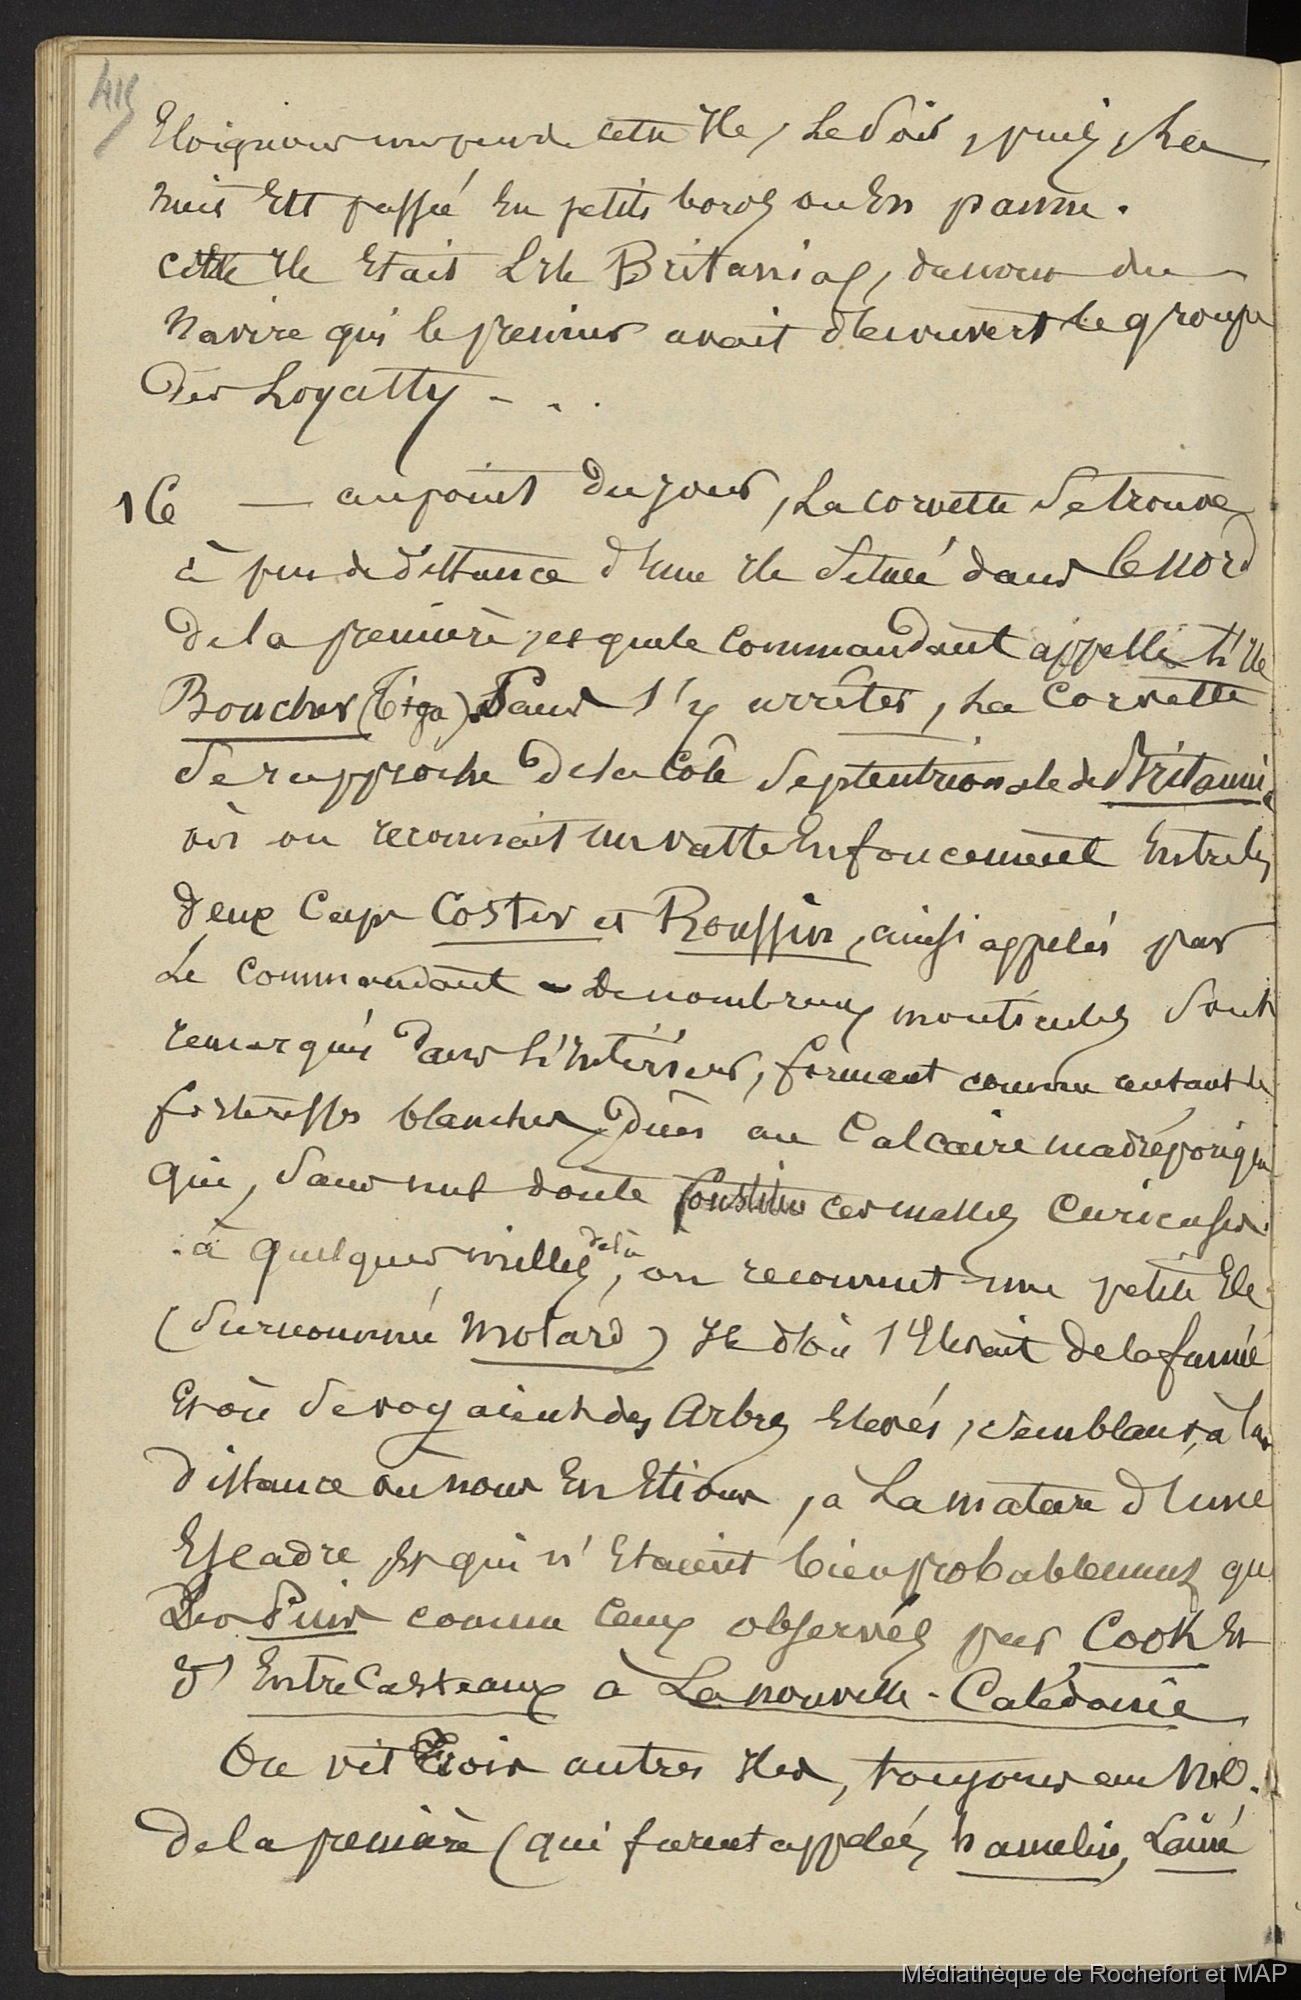 415
Eloignons un peu de cette Ile, le Soir, puis, La
nuit Est passée En petits bords ou En panne.
cette Ile Etait L'Ile Britania, du nom du
Navire qui le premier avait découvert le groupe
Des Loyalty - . .
16 — au point Du jour, La corvette se trouve
à peu de distance d'une Ile Située dans le nord
De la première, et que le Commandant appelle L'Ile
Boucher (Tiga). Sans s'y arrêter, La Corvette
se rapproche De la Côte Septentrionale de Britania
où on reconnait un vaste Enfoncement Entre les
deux Caps Coster et Roussin, ainsi appelés par
Le Commandant - De nombreux monticules Sont
remarqués Dans L'intérieur, formant comme autant de
forteresses blanches, Dûes au Calcaire madréporique
qui, Sans nul doute Constitue ces masses Curieuses.
- à Quelques milles de là, on reconnut une petite Ile
(Surnommée Motard) Ile d'où s'élevait De la fumée
Et où Se voyaient des Arbres Elevés, Semblant, à la
distance où nous En Etions, a La mature d'une
Escadre Et qui n'Etaient bien probablement que
Des Pins comme Ceux observés par Cook Et
D'EntreCasteaux à La nouvelle-Calédonie
On vit Trois autres Iles, toujours au N.O.
De la première (qui furent appelées hamelin, Lainé
Médiathèque de Rochefort et MAP